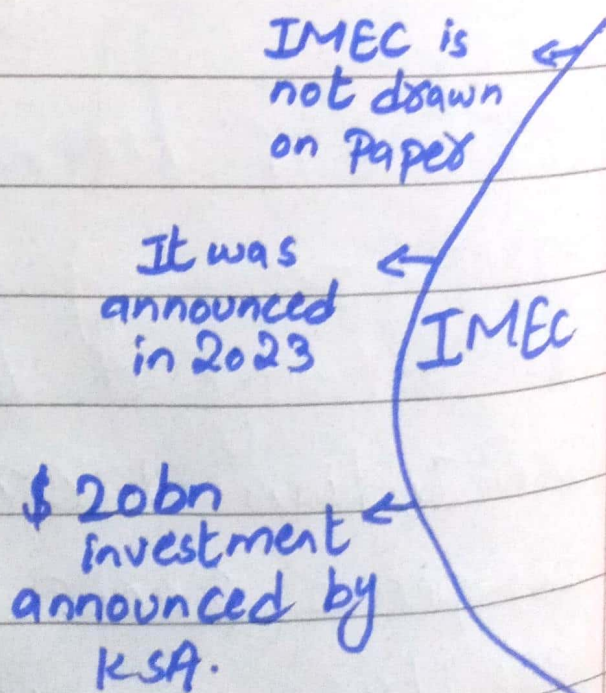 IMEC is
not drawn
on Paper
It was
announced
in 2023
IMEC
$ 20bn
investment
announced by
KSA.